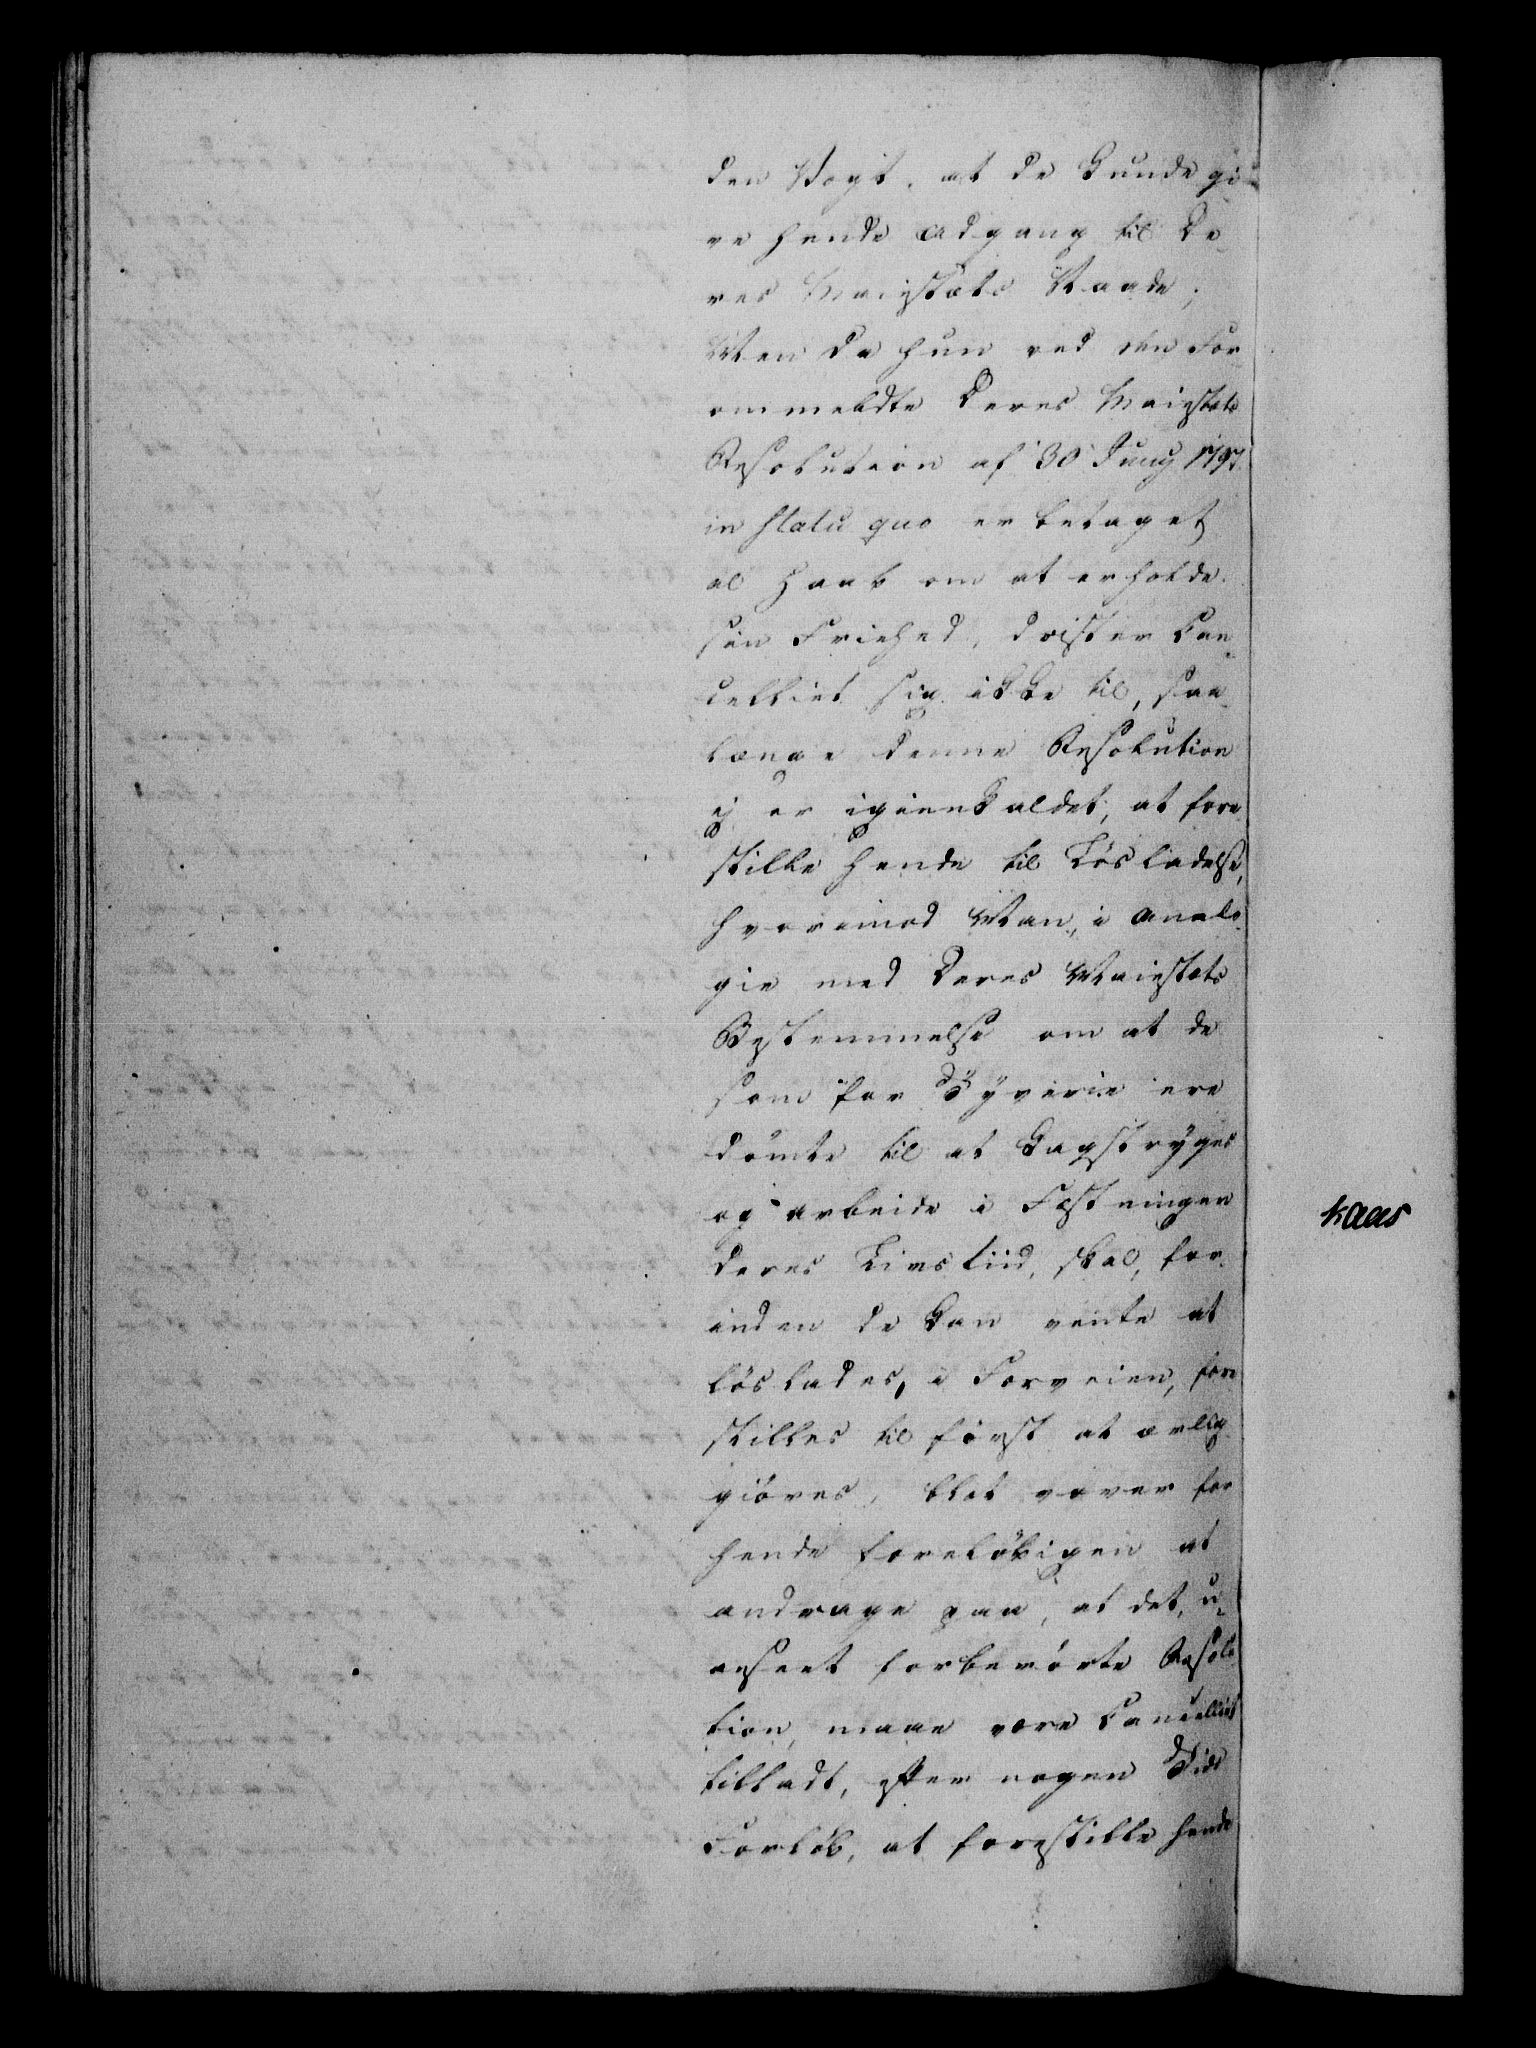 den Vægt, at de kunde gi-
ve hende Adgang til De-
res Majestæts Naade;
Men da hun ved den For-
ommeldte Deres Majestæts
Resolution af 30 Juny 1797.
in statu quo er betaget
al Haab om at erholde
sin Friehed, drister Can-
celliet sig ikke til, saa-
længe denne Resolution
ej er igienkaldet, at fore
stille hende til Løsladelse,
hvorimod Man, i Analo-
gie med Deres Majestæts
Bestemmelse om at de
som for Tyverie ere
dömte til at Kagstryges
og arbeide i Fæstningen
deres Livs tiid, skal, for-
inden de kan vente at
löslades, i Forveien, fore
stilles til först at ærlig-
giöres, blot vover for
hende foreløbigen at
andrage paa, at det, u-
anseet forberørte Resolu
tion, maae være Cancelliet
tilladt, efter nogen Tids
Forløb, at forestille hende
Kaas